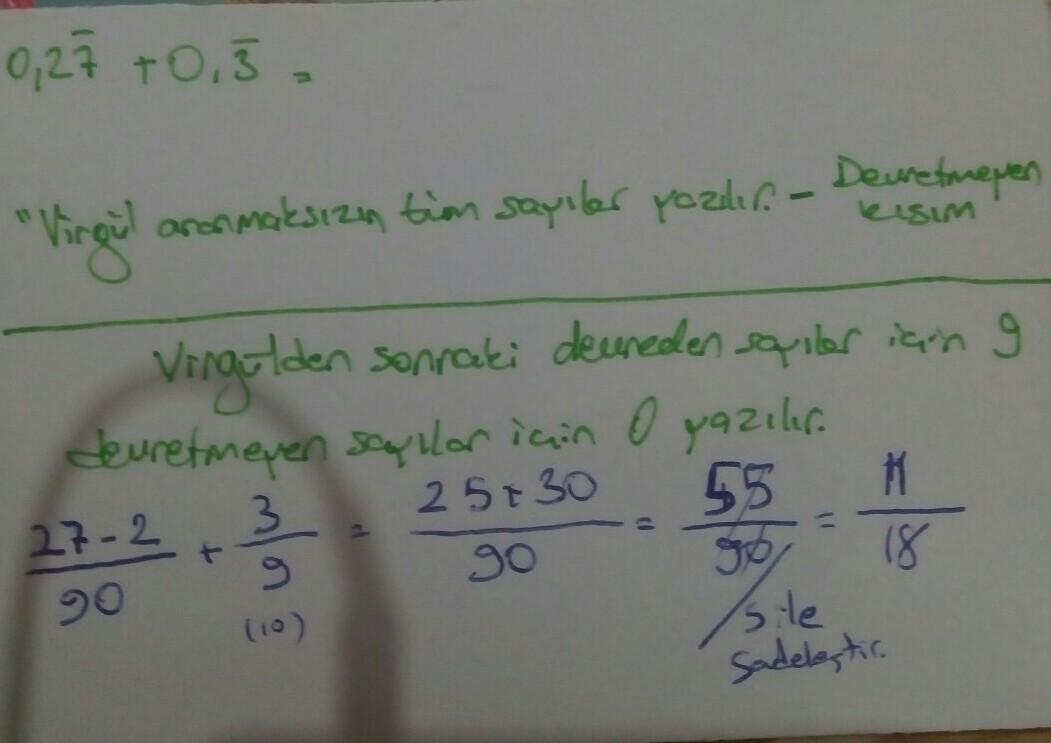 0,27̅ + 0,3̅ =
"Virgül aranmaksızın tüm sayılar yazılır. - Devretmeyen kısım
Virgülden sonraki devreden sayılar için 9
devretmeyen sayılar için 0 yazılır.
27-2/90 + 3/9 = 25+30/90 = 55/90 = 11/18
(10)
5 ile
sadeleştir.